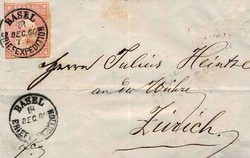 BASEL
18
DEC. 60
BRIEFEXPEDITION
Herrn Julius Heinke
an der Wühre
Zürich
BASEL
18
DEC. 60
BRIEFEXPEDITION